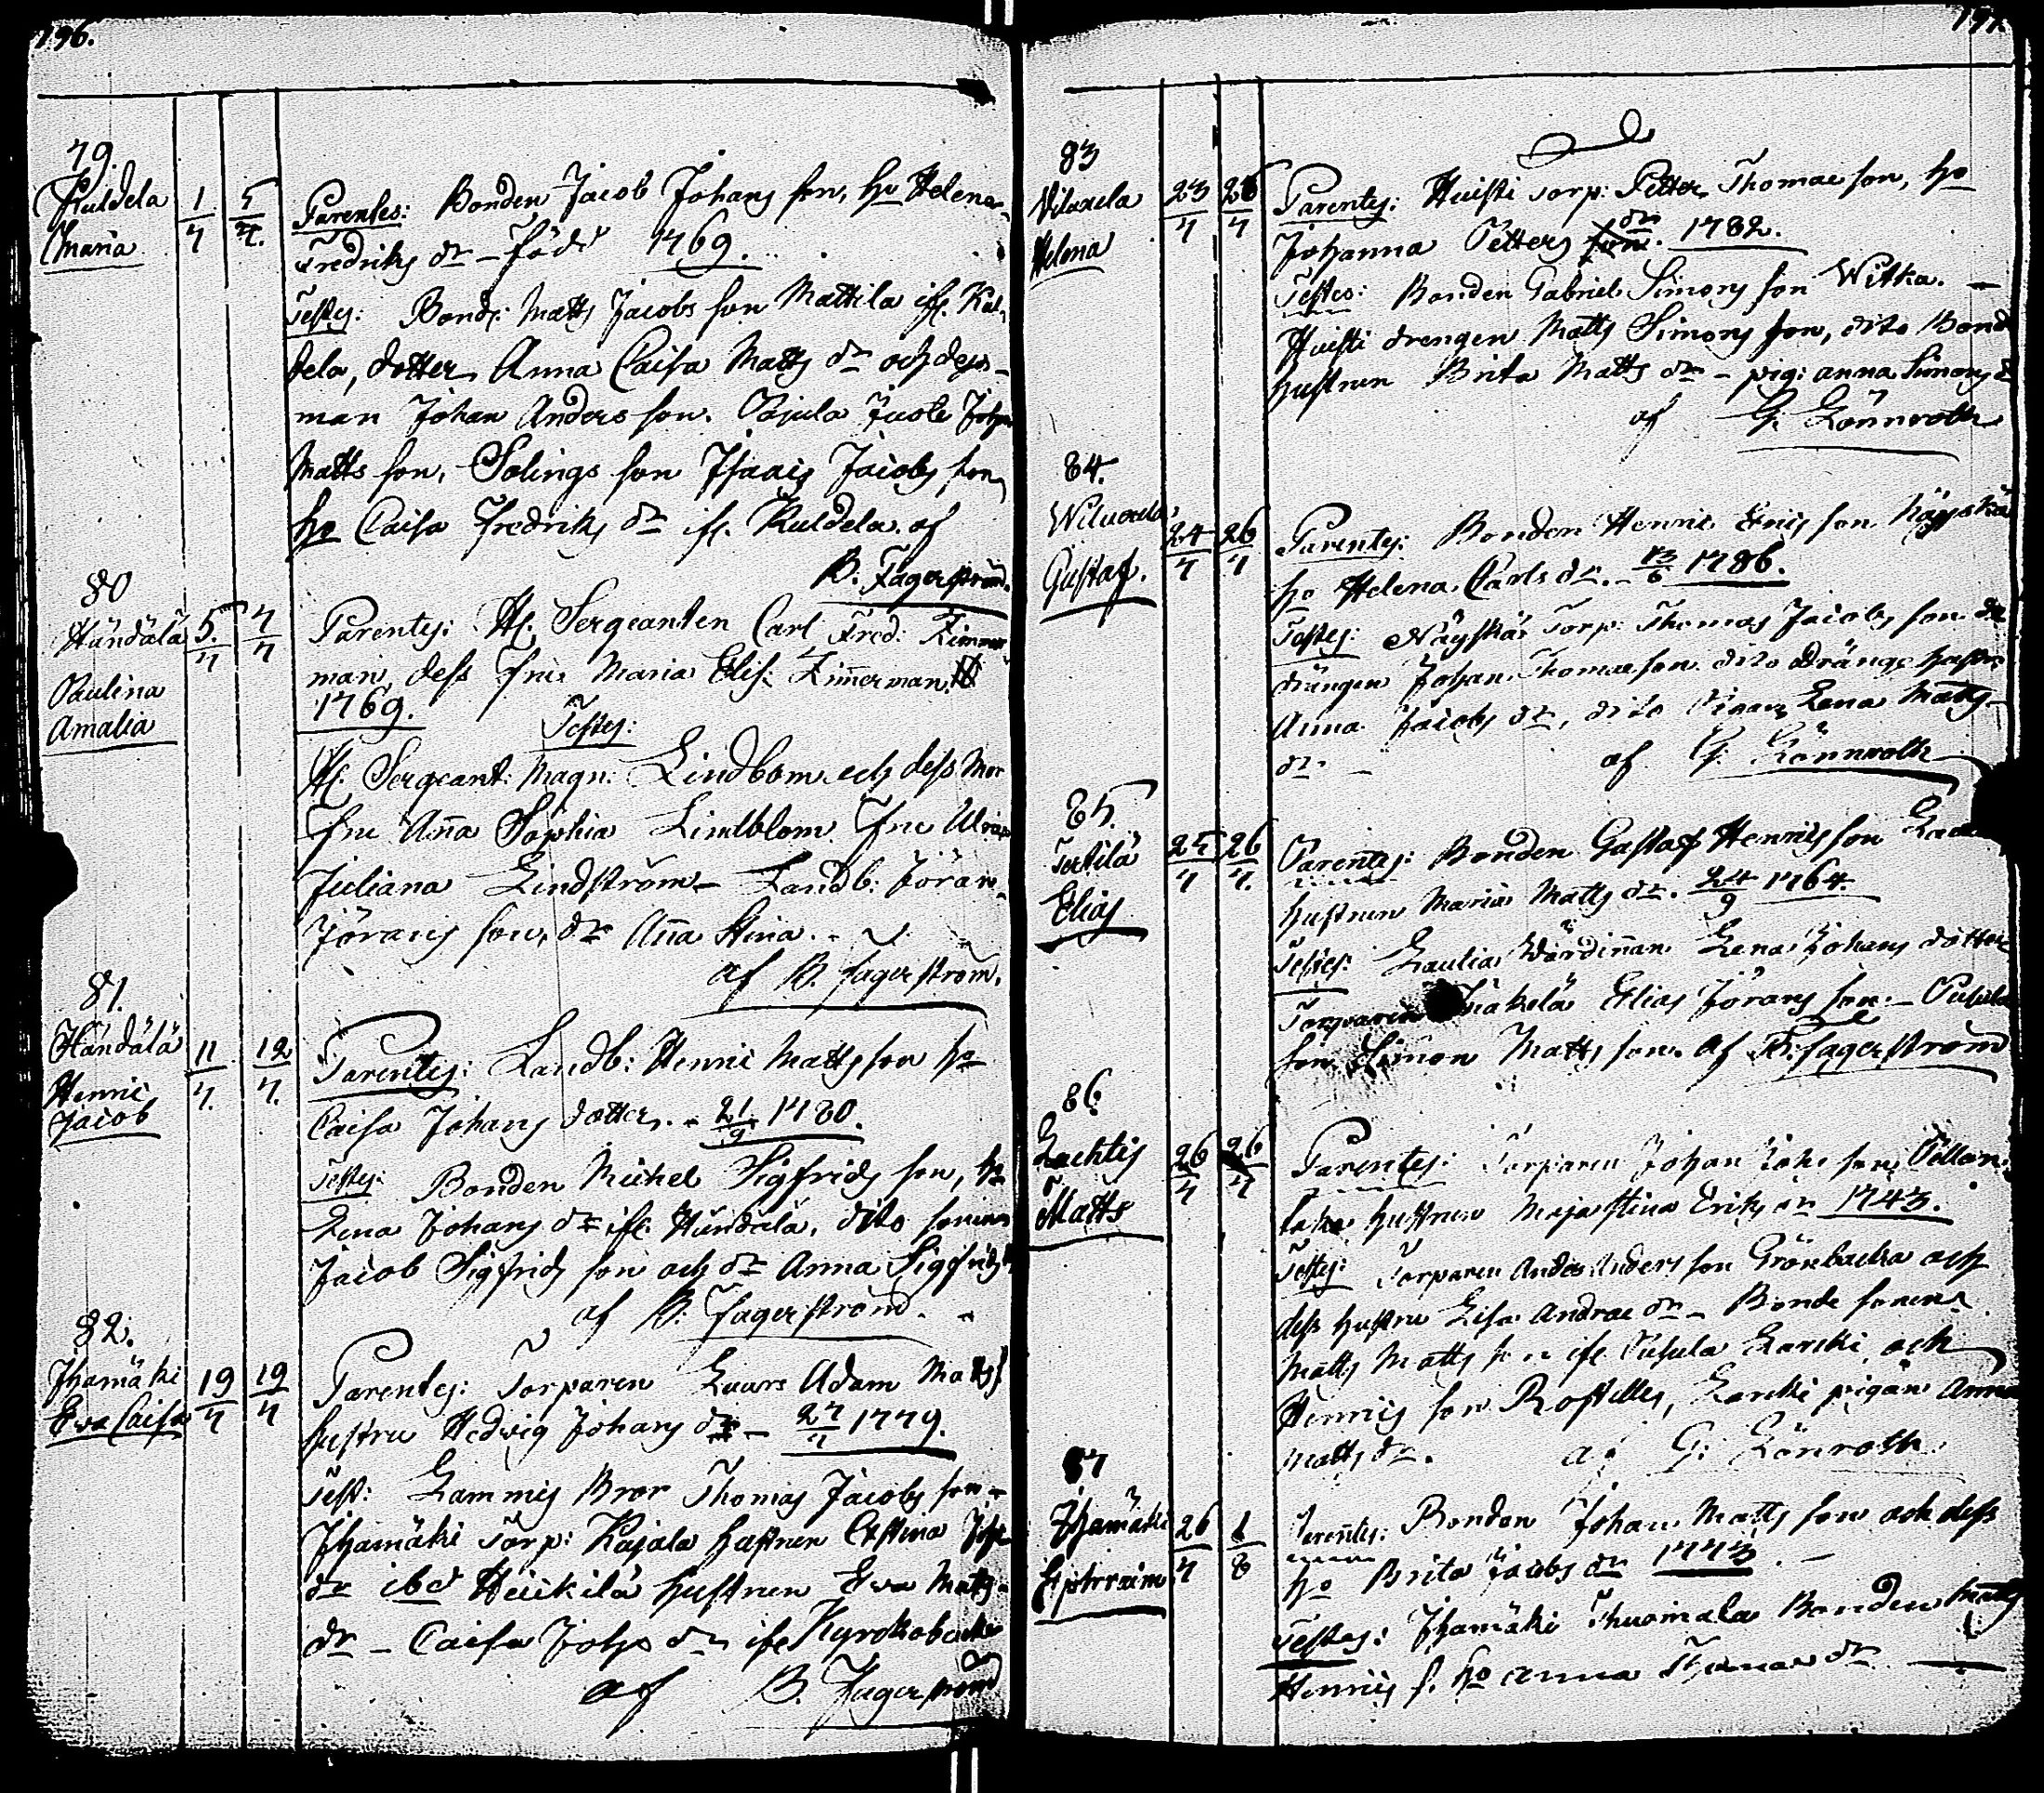 196.
79.
Kuldela
Maria
1/7 5/7.
Parentes: Bonden Jacob Johans son, ho Helena
Fredriks dr – född 1769.
Testes: Bond: Matts Jacobs son Mattila ifr. Kul-
dela, dotter Anna Caisa Matts dr och dess
man Johan Anders son. Pajula
Matts son, Solings son Isaacs Jacobs son
ho Caisa Fredriks dr ifr. Kuldela. af
B. Fagerström.
80
Händälä
Paulina
Amalia
5./7 7/7
Parentes: H: Sergeanten Carl Fred: Zimmer
man, dess fru Maria Elis: Zimmerman.
1769.
Testes:
H: Sergeant: Magn: Lindbom och dess Mor
Fru Anna Sophia Lindblom Fru Ulrica
Juliana Lindström – Landb: Jöran
Jörans son, dr Anna Stina. –
af B. Fagerström.
81.
Händälä
Henric
Jacob
11/7. 12/7.
Parentes: Landb: Henric Matts son ho
Caisa Johans dotter. – 21/9 1780.
Testes: Bonden Michel Sigfrids son, ho
Lena Johans dr ifr. Händälä. dito sonen
Jacob Sigfrids son och dr Anna Sigfrids
af B. Fagerström. –
82.
Ihamäki
Eva Caisa
19/7 19/7
Parentes: Torparen Lars Adam Matts
hustru Hedvig Johans dr – 27/7 1779.
Test: Lammis Bror Thomas Jacobs son –
Ihamäki Torp: Kajala hustrun Cristina Joh
dr ibd Heickilä hustrun Eva Matts
dr – Caisa Johs dr ifr Kyrckobacka
af B. Fagerström
197.
83
Viluxela
Helena
23/7 26/7
Parentes: Huisti Torp: Petter Thomae son, ho
Johanna Petters dr. 1782.
Testes: Bonden Gabriel Simons son Witka. –
Huisti drengen Matts Simons son, dito Bond
hustrun Brita Matts dr – pig: anna Simons d
af G. Lönnroth
84.
Wiluxela
Gustaf.
24/7 26/7
Parentes: Bonden Henric Erics son Näyskä
ho Helena Carls dr. – 13/6 1786.
Testes: Näyskä Torp: Thomas Jacobs son
drängen Johan Thomae son dito Drängs hustru
Anna Jacobs dr, dito Lena Matts
dr – af G. Lönnroth
85.
Tortilä
Elias
25/7 26/7.
Parentes: Bonden Gustaf Henrics son
hustrun Maria Matts dr. 24/9 1764.
Testes: Lautia Wärdinnan Lena Johans dotter
Torparen Elias Jörans son. –
son Simon Matts son. af B. Fagerström
86
Matts
26/7 26/7
Parentes: Torparen Johan Johs son
hustrun Maja Stina Eriks dr 1743.
Testes: Torparen Anders Anders son Grönbacka och
dess hustru Lisa Andrae dr – Bonde sonen
Matts Matts son ifr Pusula och
Henrics son pigan Anna
Matts dr. af G: Lönroth
87
Ihamäki
26/7 1/8
Parentes: Bonden Johan Matts son och dess
ho Brita Jacobs dr 1773. –
Testes: Ihamäki Bonden Matts
Henrics s. ho Anna Thomae dr –